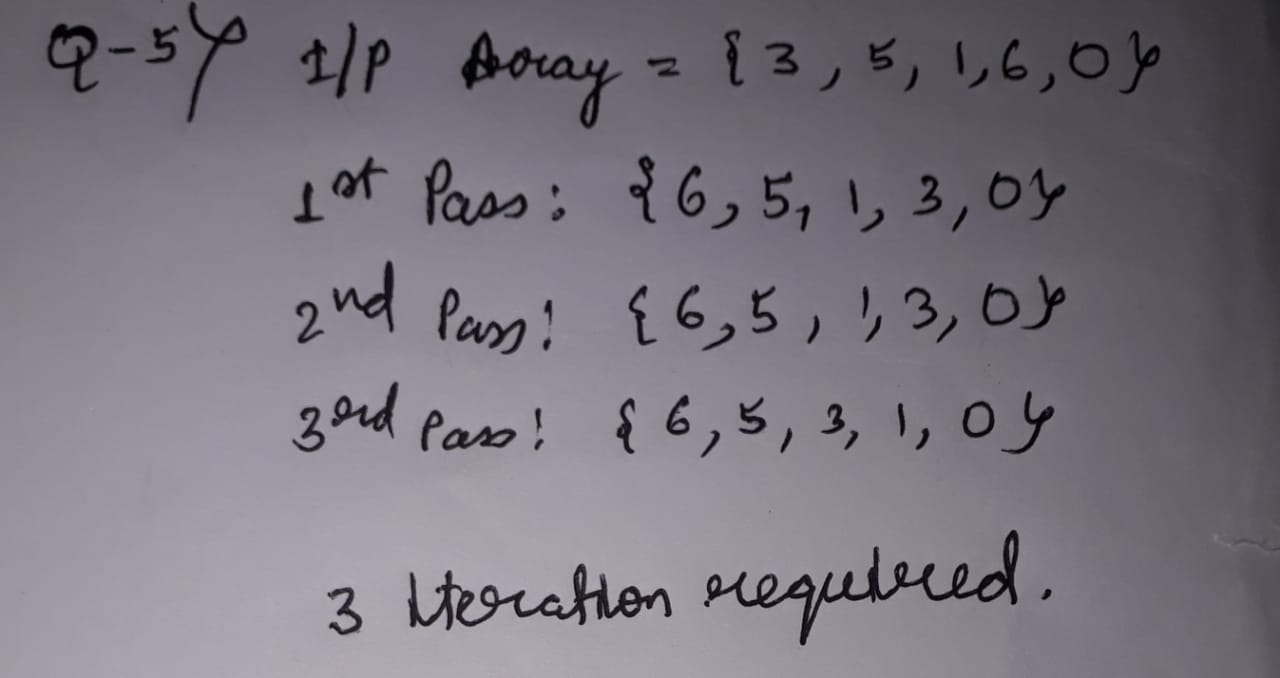 Q-5) I/P Array = {3, 5, 1, 6, 0}
1st Pass: {6, 5, 1, 3, 0}
2nd Pass: {6, 5, 1, 3, 0}
3rd Pass: {6, 5, 3, 1, 0}
3 Iteration required.